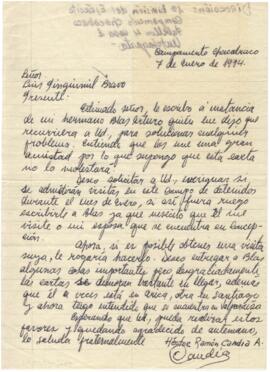 Campamento Chacabuco
7 de Enero de 1974.
Señor
Luis
Bravo
Presente.
Estimado señor, le escribo a instancia
de mi hermano Blas Arturo quien me dijo que
recurriera a Ud, para solucionar cualquier
problema. Entiendo que los une una gran
amistad por lo que supongo que esta carta
no lo molestará.
Deseo solicitar a Ud, averiguar si
se admitirán visitas en este campo de detenidos
durante el mes de enero, si así fuera ruego
escribirle a Blas ya que necesito que él me
visite o mi esposa que se encuentra en Concep-
ción.
Ahora, si es posible obtener una visita
suya, le rogaría hacerlo. Deseo entregar a Blas
algunas cosas importantes pero desgraciadamente
las cartas se demoran bastante en llegar, además
que él a veces está en Arica, otra en Santiago
y ahora tengo entendido que se encuentra en Valparaíso.
Esperando que Ud, pueda realizar estos
favores y quedando agradecido de antemano,
lo saluda fraternalmente
Héctor Ramón Candia A.
Candia